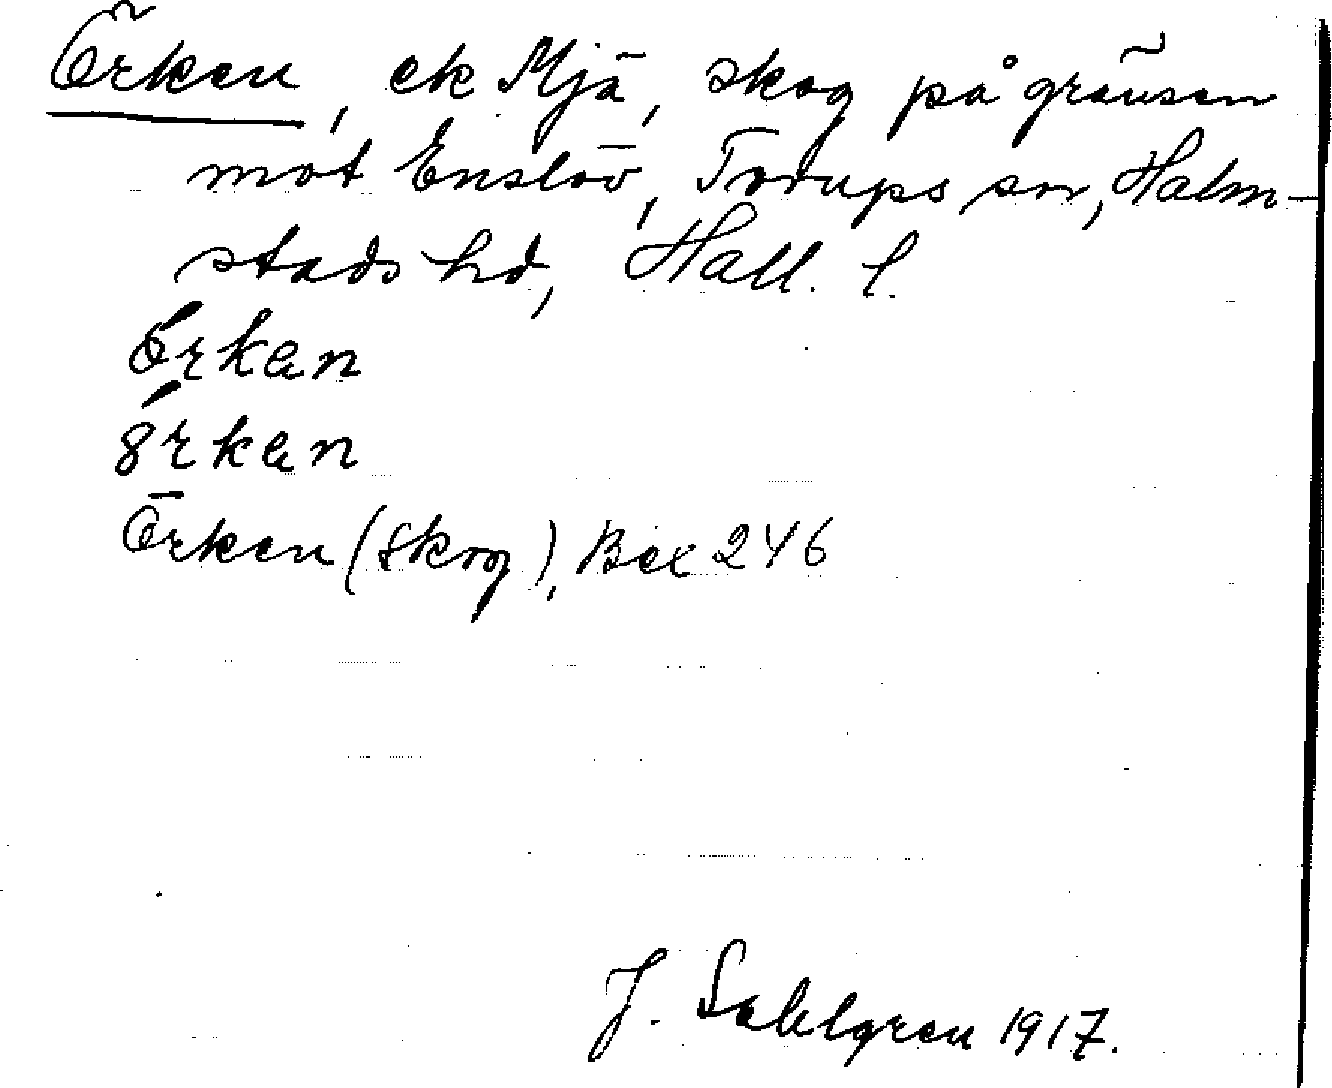 Örken, ek Mjä, skog på gränsen
mot Enslöv, Torups sn, Halm-
stads hd, Hall. l.
Örken (skog), Bex 246
J. Sahlgren 1917.